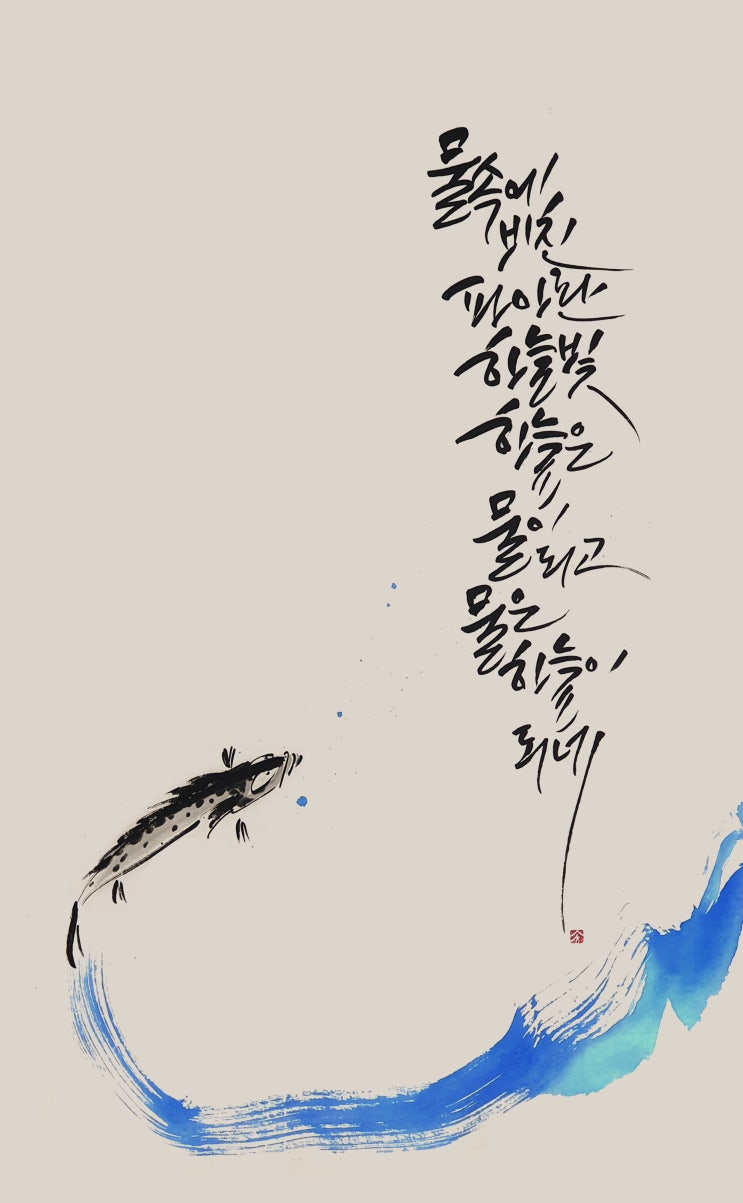 물속에
비친
파아란
하늘빛
하늘은
물이
되고
물은
하늘이
되네